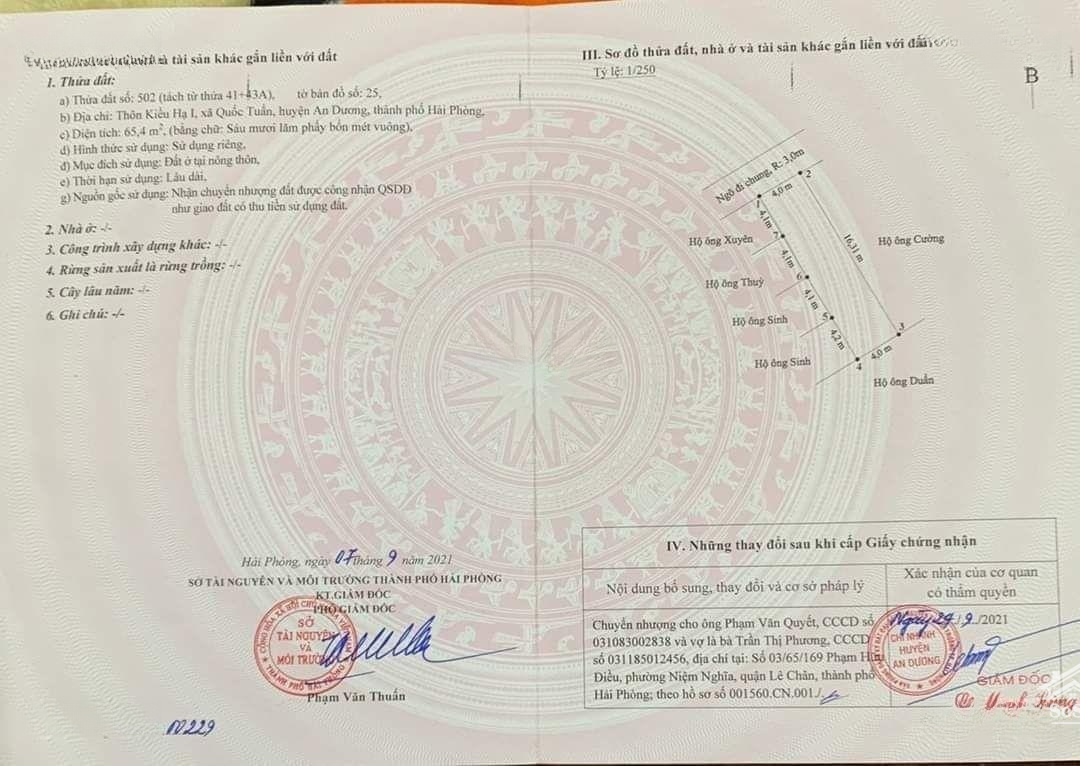 và tài sản khác gắn liền với đất
1. Thửa đất:
a) Thửa đất số: 502 (tách từ thửa 41+43A), tờ bản đồ số: 25,
b) Địa chỉ: Thôn Kiều Hạ I, xã Quốc Tuấn, huyện An Dương, thành phố Hải Phòng,
c) Diện tích: 65,4 m², (bằng chữ: Sáu mươi lăm phẩy bốn mét vuông),
d) Hình thức sử dụng: Sử dụng riêng,
đ) Mục đích sử dụng: Đất ở tại nông thôn,
e) Thời hạn sử dụng: Lâu dài,
g) Nguồn gốc sử dụng: Nhận chuyển nhượng đất được công nhận QSDĐ
như giao đất có thu tiền sử dụng đất.
2. Nhà ở: -/-
3. Công trình xây dựng khác: -/-
4. Rừng sản xuất là rừng trồng: -/-
5. Cây lâu năm: -/-
6. Ghi chú: -/-
Hải Phòng, ngày 07 tháng 9 năm 2021
SỞ TÀI NGUYÊN VÀ MÔI TRƯỜNG THÀNH PHỐ HẢI PHÒNG
KT.GIÁM ĐỐC
PHÓ GIÁM ĐỐC
SỞ
TÀI NGUYÊN
VÀ
MÔI TRƯỜNG
THÀNH PHỐ HẢI PHÒNG
Phạm Văn Thuấn
00229
III. Sơ đồ thửa đất, nhà ở và tài sản khác gắn liền với đất
Tỷ lệ: 1/250
B
Ngõ đi chung, R: 3,0m
1
4,0 m
2
4,1m
7
Hộ ông Xuyên
4,1m
16,31 m
Hộ ông Cường
6
Hộ ông Thuỳ
4,1 m
5
Hộ ông Sinh
4,2 m
3
4,0 m
4
Hộ ông Sinh
Hộ ông Duẩn
IV. Những thay đổi sau khi cấp Giấy chứng nhận
Nội dung bổ sung, thay đổi và cơ sở pháp lý
Xác nhận của cơ quan
có thẩm quyền
Chuyển nhượng cho ông Phạm Văn Quyết, CCCD số
031083002838 và vợ là bà Trần Thị Phương, CCCD
số 031185012456, địa chỉ tại: Số 03/65/169 Phạm Hữu
Điều, phường Niệm Nghĩa, quận Lê Chân, thành phố
Hải Phòng; theo hồ sơ số 001560.CN.001./.
Ngày 29/9/2021
CHI NHÁNH
HUYỆN
AN DƯƠNG
GIÁM ĐỐC